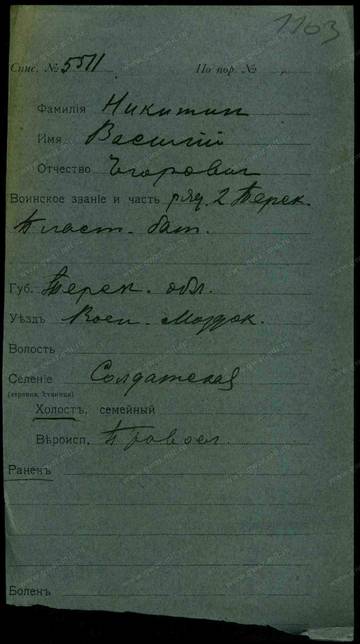 1163
Спис. № 5511 По пор. №
Фамилія Никитин
Имя Василій
Отчество Егорович
Воинское званіе и часть ряд. 2 Терек.
Пласт. бат.
Губ. Терек. обл.
Уѣздъ Моздок.
Волость
Селеніе Солдатская
(деревня, станица)
Холостъ, семейный
Вѣроисп. Правосл.
Раненъ
Боленъ